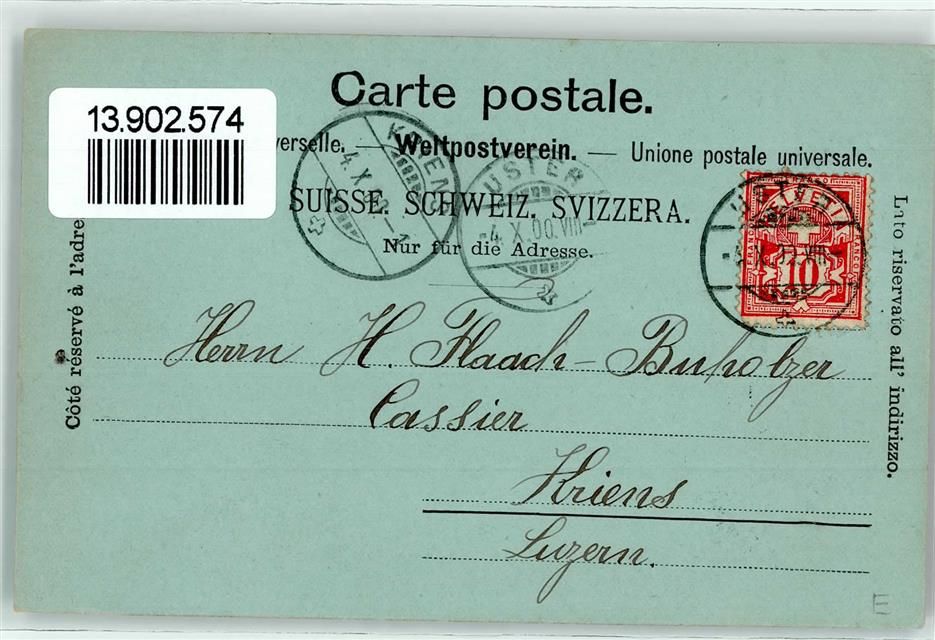 Carte postale.
13.902.574
verselle. — Weltpostverein. — Unione postale universale.
SUISSE. SCHWEIZ. SVIZZERA.
Nur für die Adresse.
USTER
-4.X.00.VIII
HELVETIA
FRANCO
FRANCO
10
Côté réservé à l'adre
Lato riservato all' indirizzo.
Herrn H. Flaach-Buholzer
Cassier
Kriens
Luzern.
E